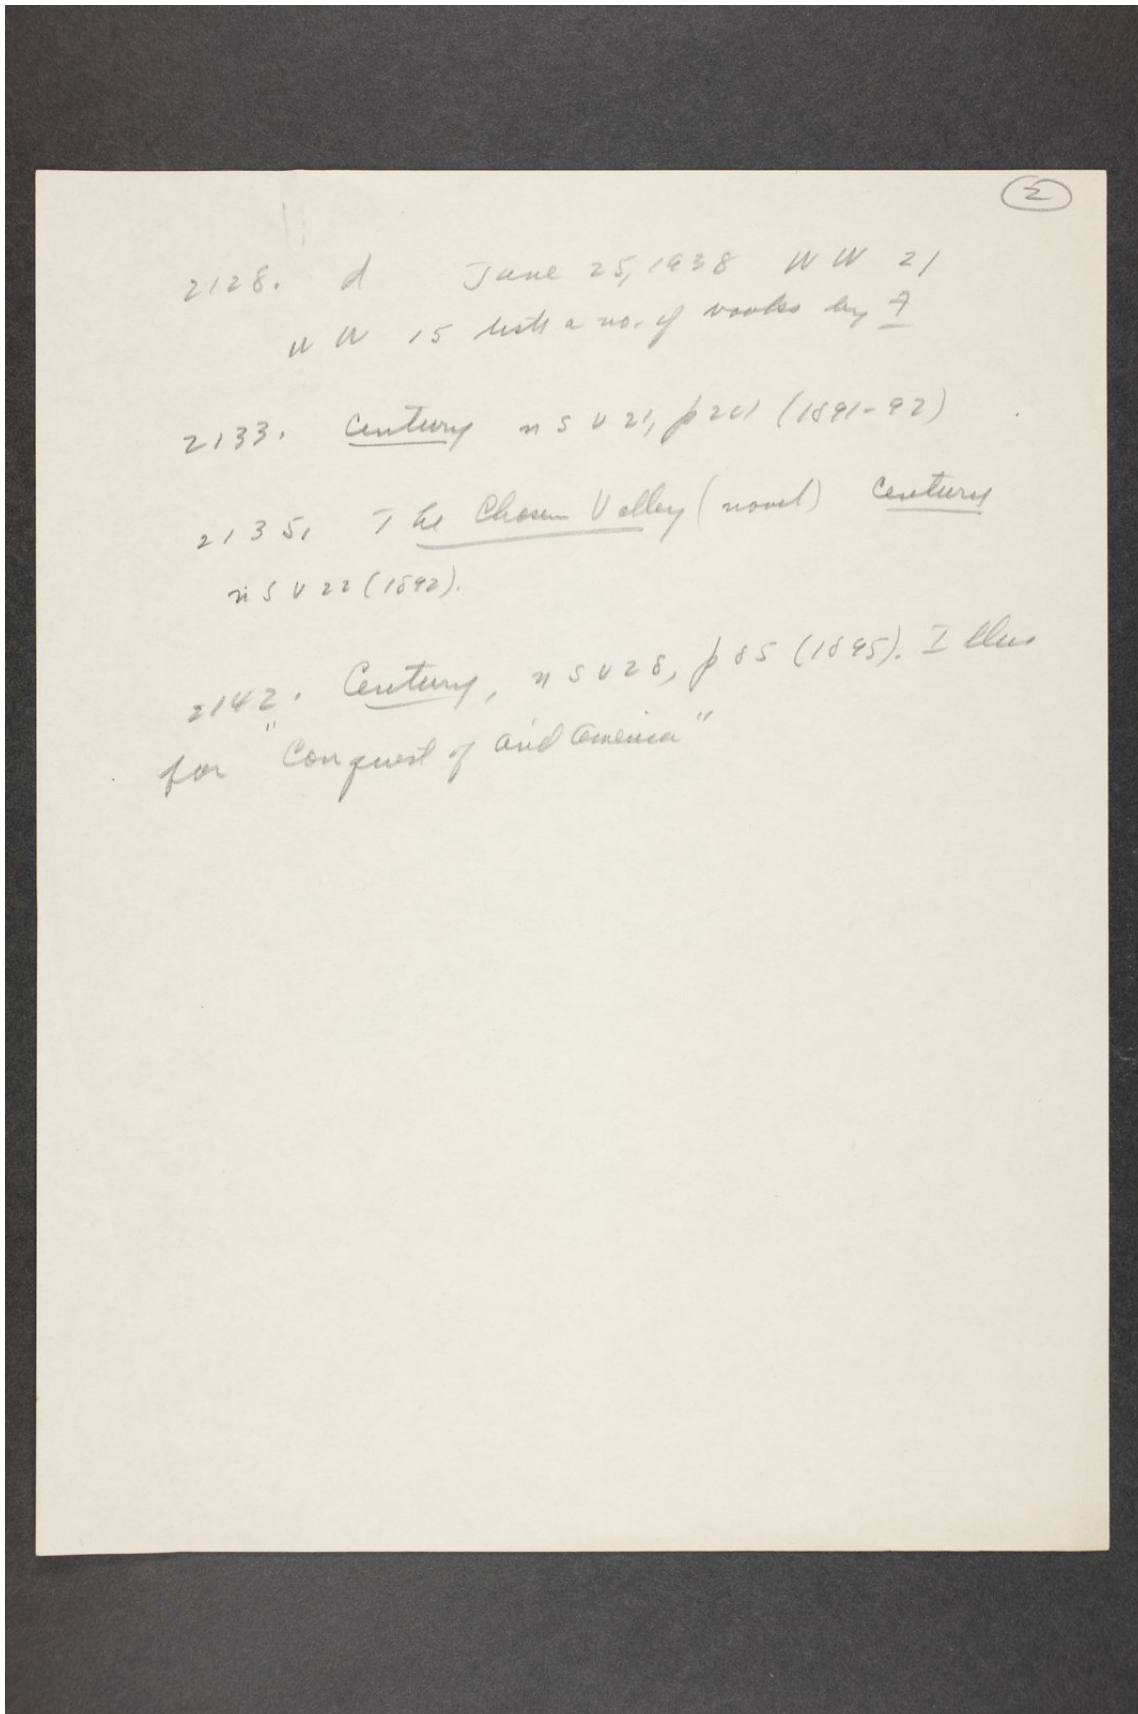 2
2128. d June 25, 1938 WW 21
WW 15 lists a no. of books by A
2133. Century n s v 21, p 201 (1891-92)
2135. The Chosen Valley (novel) Century
n s v 22 (1892).
2142. Century, n s v 28, p 85 (1895). Illus
for "Conquest of Arid America"